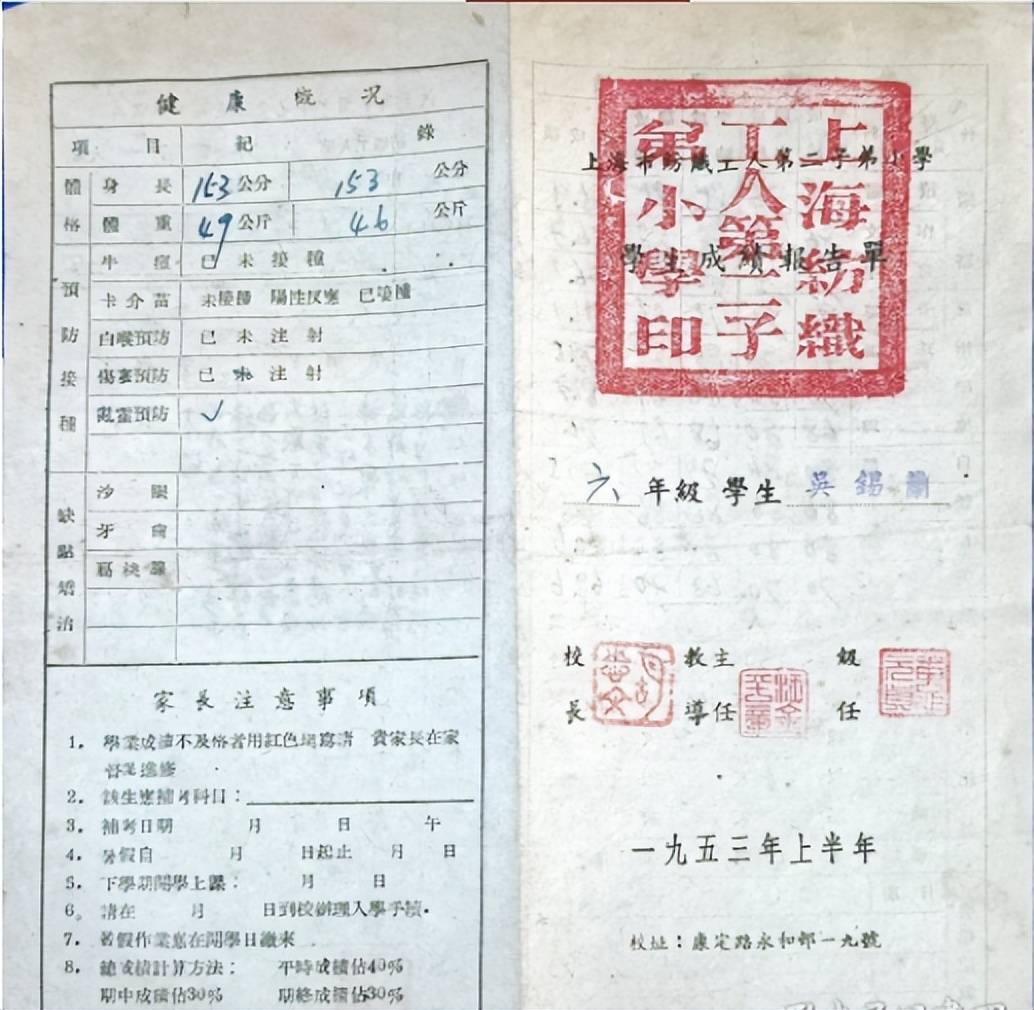 健康概況
項目 紀錄
體格
身長 153公分 153公分
體重 49公斤 46公斤
預防接種
牛痘 已 未 接 種
卡介苗 未接種 陽性反應 已接種
白喉預防 已 未 注 射
傷寒預防 已 未 注 射
霍亂預防 ✓
缺點矯治
沙眼
牙齒
扁桃腺
家長注意事項
1. 學業成績不及格者用紅色填寫請 貴家長在家
督導進修
2. 該生應補考科目：
3. 補考日期 月 日 午
4. 暑假自 月 日起止 月 日
5. 下學期開學上課： 月 日
6. 請在 月 日到校辦理入學手續.
7. 暑假作業應在開學日繳來
8. 總成績計算方法： 平時成績佔40%
期中成績佔30% 期終成績佔30%
上海紡織
工人第二子
弟小學印
上海市紡織工人第二子弟小學
學生成績報告單
六年級 學生 吳錫蘭
校長 教導主任 級任
一九五三年上半年
校址：康定路永和邨一九號